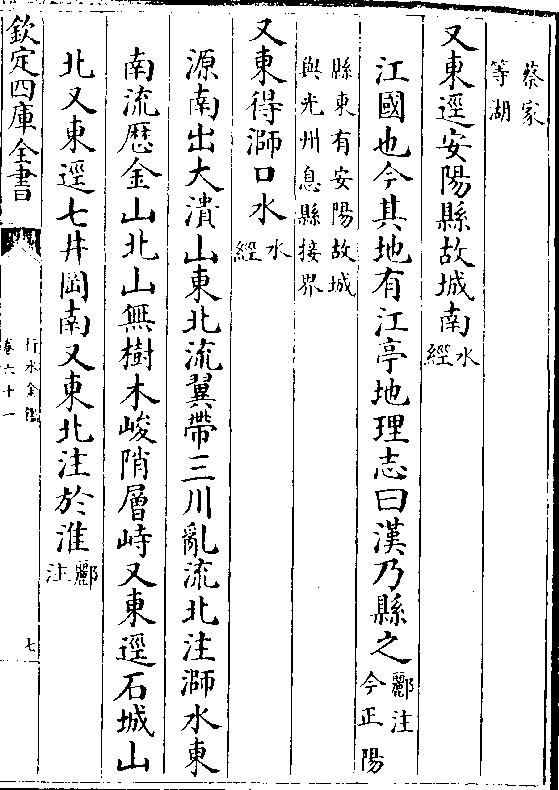 蔡家
等湖
又東逕安陽縣故城南水
經
江國也今其地有江亭地理志曰漢乃縣之酈注
今正陽
縣東有安陽故城
與光州息縣接界
又東得溮口水水
經
源南出大潰山東北流翼帶三川亂流北注溮水東
南流歷金山北山無樹木峻陗層峙又東逕石城山
北又東逕七井岡南又東北注於淮酈
注
欽定四庫全書
行水金鑑
卷六十一
七